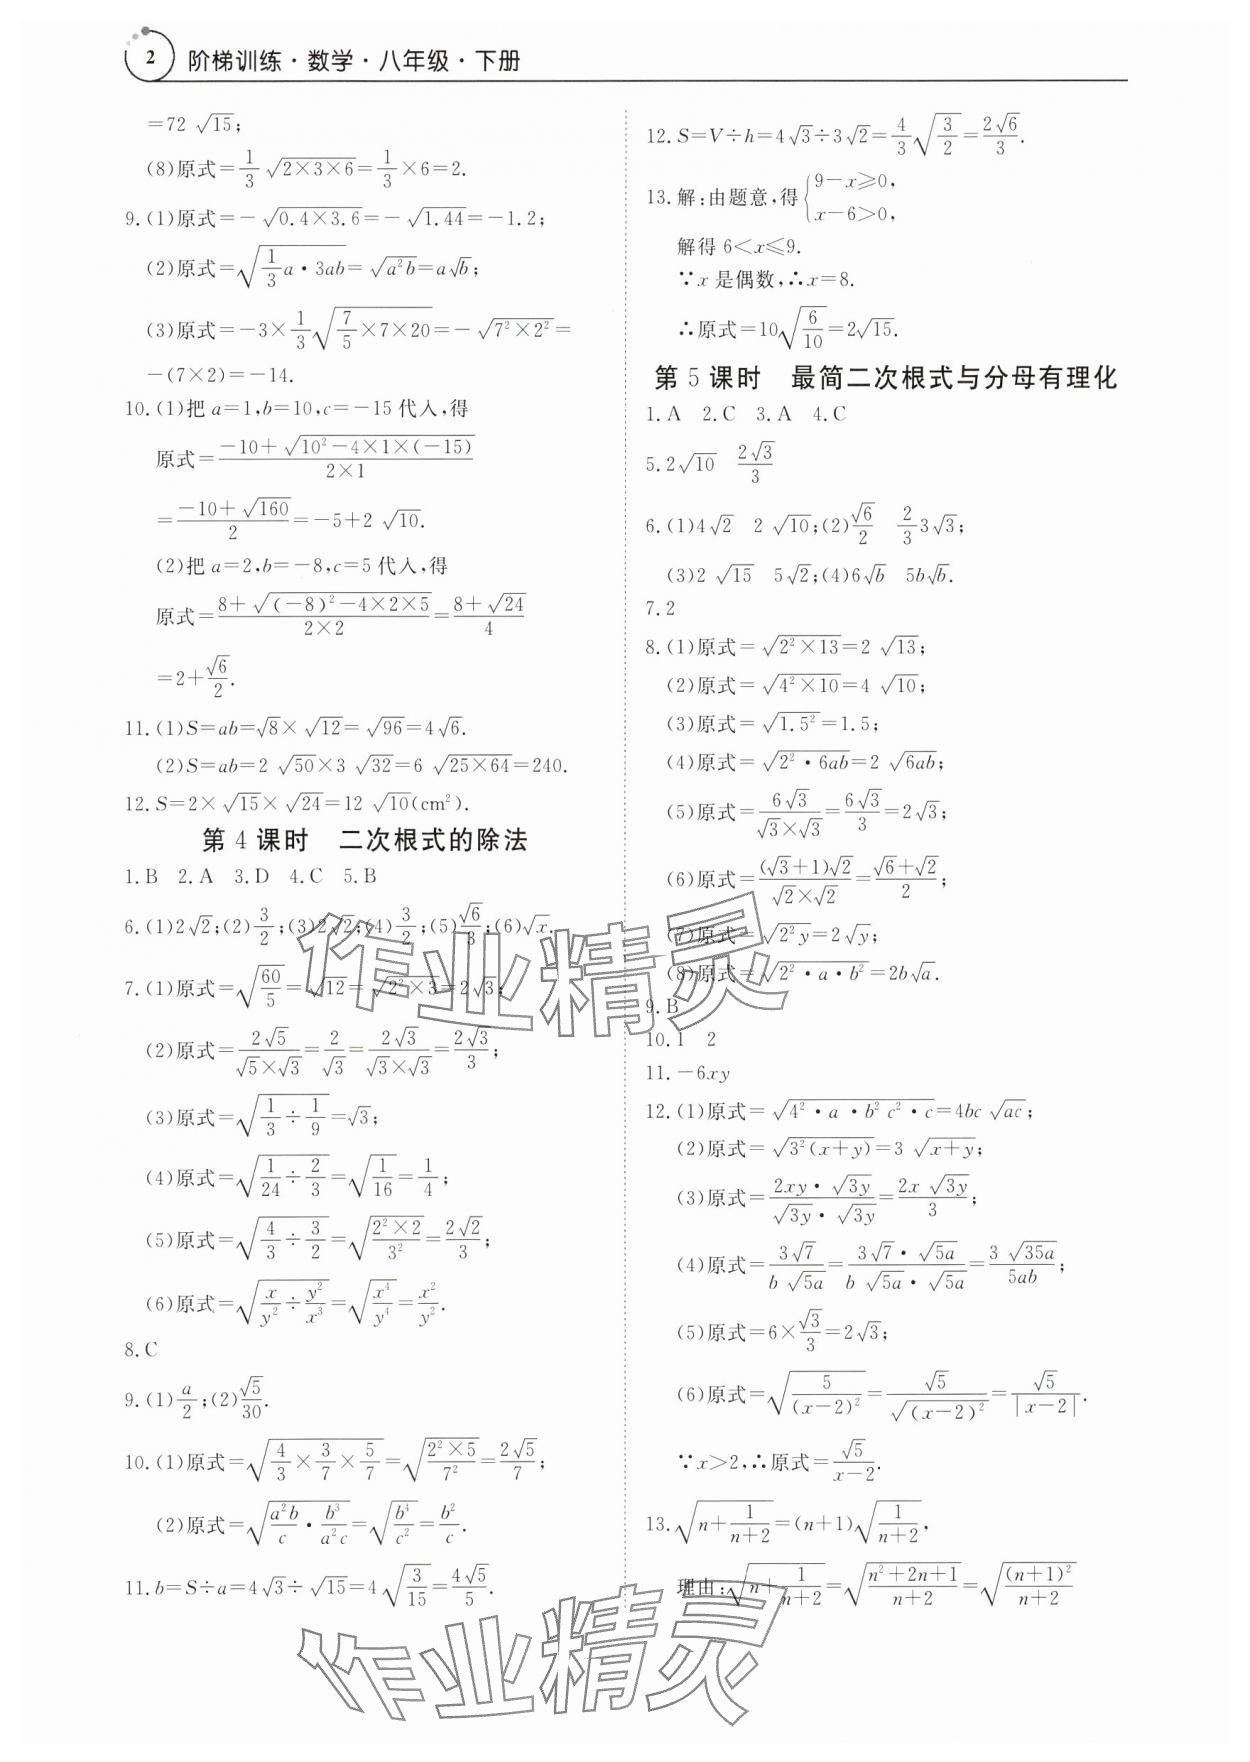 2 阶梯训练·数学·八年级·下册
=72√15;
(8)原式=1/3√(2×3×6)=1/3×6=2.
9.(1)原式=-√(0.4×3.6)=-√1.44=-1.2;
(2)原式=√(1/3a·3ab)=√(a²b)=a√b;
(3)原式=-3×1/3√(7/5×7×20)=-√(7²×2²)=
-(7×2)=-14.
10.(1)把a=1,b=10,c=-15代入,得
原式=(-10+√(10²-4×1×(-15)))/(2×1)
=(-10+√160)/2=-5+2√10.
(2)把a=2,b=-8,c=5代入,得
原式=(8+√((-8)²-4×2×5))/(2×2)=(8+√24)/4
=2+√6/2.
11.(1)S=ab=√8×√12=√96=4√6.
(2)S=ab=2√50×3√32=6√(25×64)=240.
12.S=2×√15×√24=12√10(cm²).
第4课时 二次根式的除法
1.B 2.A 3.D 4.C 5.B
6.(1)2√2;(2)3/2;(3)2√2;(4)3/2;(5)√6/3;(6)√x.
7.(1)原式=√(60/5)=√12=√(2²×3)=2√3;
(2)原式=2√5/(√5×√3)=2/√3=2√3/(√3×√3)=2√3/3;
(3)原式=√(1/3÷1/9)=√3;
(4)原式=√(1/24÷2/3)=√(1/16)=1/4;
(5)原式=√(4/3÷3/2)=√((2²×2)/3²)=2√2/3;
(6)原式=√(x/y²÷y²/x³)=√(x⁴/y⁴)=x²/y².
8.C
9.(1)a/2;(2)√5/30.
10.(1)原式=√(4/3×3/7×5/7)=√((2²×5)/7²)=2√5/7;
(2)原式=√(a²b/c·b³/(a²c))=√(b⁴/c²)=b²/c.
11.b=S÷a=4√3÷√15=4√(3/15)=4√5/5.
12.S=V÷h=4√3÷3√2=4/3√(3/2)=2√6/3.
13.解:由题意,得{9-x≥0,
x-6>0,
解得6<x≤9.
∵x是偶数,∴x=8.
∴原式=10√(6/10)=2√15.
第5课时 最简二次根式与分母有理化
1.A 2.C 3.A 4.C
5.2√10 2√3/3
6.(1)4√2 2√10;(2)√6/2 2/3 3√3;
(3)2√15 5√2;(4)6√b 5b√b.
7.2
8.(1)原式=√(2²×13)=2√13;
(2)原式=√(4²×10)=4√10;
(3)原式=√(1.5²)=1.5;
(4)原式=√(2²·6ab)=2√(6ab);
(5)原式=6√3/(√3×√3)=6√3/3=2√3;
(6)原式=(√3+1)√2/(√2×√2)=(√6+√2)/2;
(7)原式=√(2²y)=2√y;
(8)原式=√(2²·a·b²)=2b√a.
9.B
10.1 2
11.-6xy
12.(1)原式=√(4²·a·b²c²·c)=4bc√(ac);
(2)原式=√(3²(x+y))=3√(x+y);
(3)原式=2xy·√(3y)/(√(3y)·√(3y))=2x√(3y)/3;
(4)原式=3√7/(b√(5a))=3√7·√(5a)/(b√(5a)·√(5a))=3√(35a)/(5ab);
(5)原式=6×√3/3=2√3;
(6)原式=√(5/(x-2)²)=√5/√((x-2)²)=√5/|x-2|.
∵x>2,∴原式=√5/(x-2).
13.√(n+1/(n+2))=(n+1)√(1/(n+2)),
理由:√(n+1/(n+2))=√((n²+2n+1)/(n+2))=√((n+1)²/(n+2))
作业精灵
作业精灵